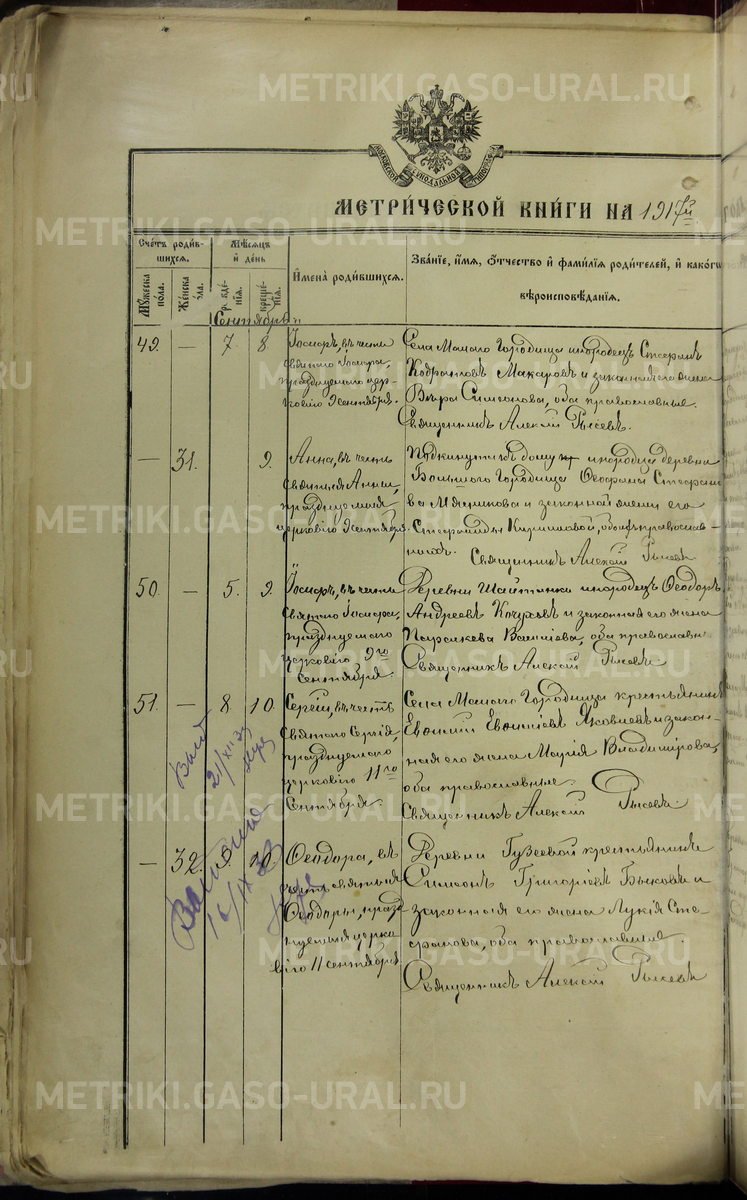 METRIKI.GASO-URAL.RU
МОСКОВСКОЙ СѴНОДАЛЬНОЙ ТИПОГРАФІИ
МЕТРИ́ЧЕСКОЙ КНИ́ГИ НА 1917й
Сче́тъ роди́вшихся.
Мѣ́сяцъ и день
Мужеска пола.
Женска пола.
рожденія.
крещенія.
Имена̀ роди́вшихся.
Зва́ніе, и́мя, о́тчество и фами́лія роди́телей, и како́гѡ
вѣроисповѣ́данія.
Сентябрь
49. — 7. 8.
Іосифъ, въ честь
святаго Іосифа,
празднуемаго цер-
ковію 9 сентября.
Села Малаго Городища инородецъ Стефанъ
Макаровъ и законная его жена
Вѣра Симеонова, оба православные.
Священникъ Алексій
— 31. 9.
Анна, въ честь
святыя Анны,
празднуемыя
церковію 9 сентября.
Подкинутая къ дому инородца деревни
Большого Городища Стефано-
ва Мячникова и законной жены его
Кирилловой, обоихъ православ-
ныхъ. Священникъ Алексій
50. — 5. 9.
Іосифъ, въ честь
святаго Іосифа,
празднуемаго
церковію 9го
Сентября.
Деревни Шайтанки инородецъ Ѳеодоръ
Андреевъ и законная его жена
Параскева оба православн.
Священникъ Алексій
51. — 8. 10.
Сергій, въ честь
святаго Сергія,
празднуемаго
церковію 11го
Сентября.
Села Малаго Городища крестьянинъ
Евѳимій Евѳиміевъ Яковлевъ и закон-
ная его жена Марія Владимірова,
оба православные.
Священникъ Алексій
— 32. 9. 10.
Ѳеодора, въ
честь святыя
Ѳеодоры, празд-
нуемыя церко-
вію 11 сентября
Деревни Гузеевой крестьянинъ
Симеонъ Григоріевъ Быковъ и
законная его жена Лукія Сте-
фанова, оба православные.
Священникъ Алексій